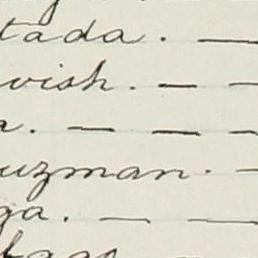 tada. — 
wish. — —
a. — — —
uzman. —
ga. — —